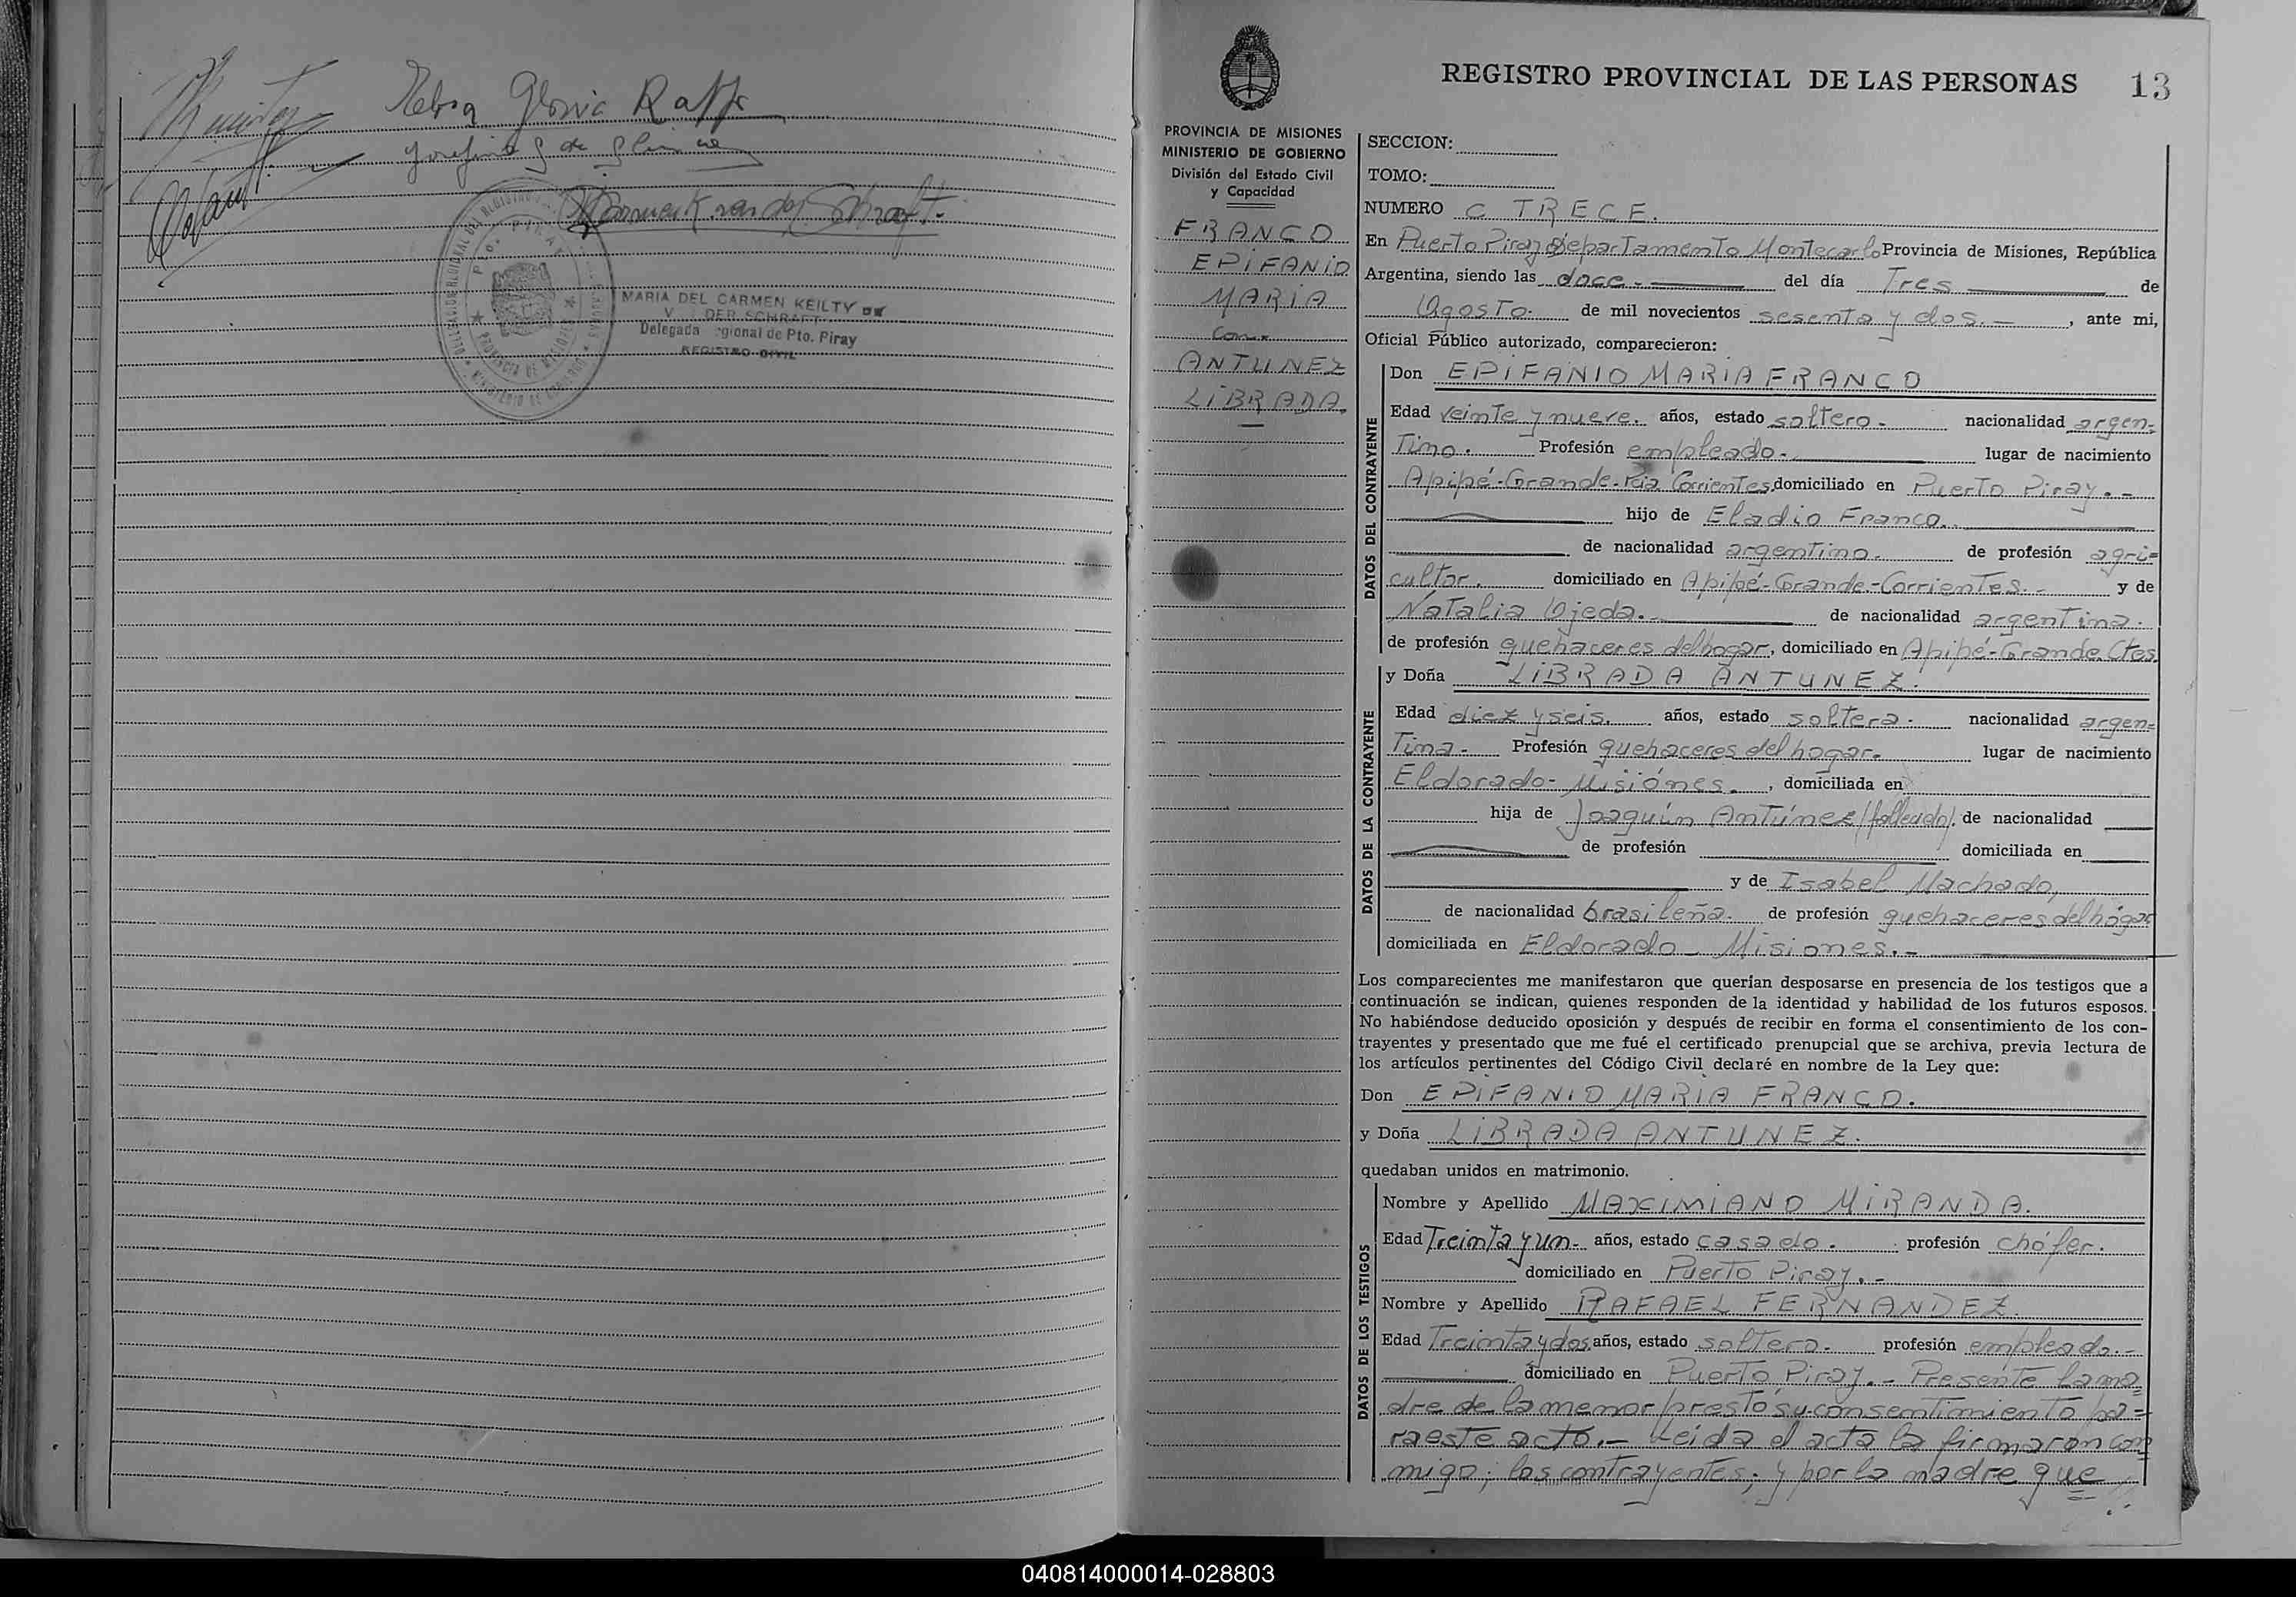 Gloria
MARIA DEL CARMEN KEILTY DE
V DER SCHRAFT
Delegada gional de Pto. Piray
REGISTRO CIVIL
REGISTRO PROVINCIAL DE LAS PERSONAS 13
PROVINCIA DE MISIONES
MINISTERIO DE GOBIERNO
División del Estado Civil
y Capacidad
FRANCO
EPIFANIO
MARIA
con
ANTUNEZ
LIBRADA.
SECCION:
TOMO:
NUMERO C TRECE.
En Puerto Piray departamento Montecarlo Provincia de Misiones, República
Argentina, siendo las doce.- del día Tres de
Agosto. de mil novecientos sesenta y dos.- , ante mi,
Oficial Público autorizado, comparecieron:
DATOS DEL CONTRAYENTE
Don EPIFANIO MARIA FRANCO
Edad veinte y nueve. años, estado soltero.- nacionalidad argen-
tino. Profesión empleado.- lugar de nacimiento
Apipé-Grande-Pcia Corrientes, domiciliado en Puerto Piray.-
hijo de Eladio Franco.
de nacionalidad argentino. de profesión agri=
cultor. domiciliado en Apipé-Grande-Corrientes.- y de
Natalia Ojeda.- de nacionalidad argentina.
de profesión quehaceres del hogar, domiciliado en Apipé-Grande Ctes.
DATOS DE LA CONTRAYENTE
y Doña LIBRADA ANTUNEZ.
Edad diez y seis. años, estado soltera. nacionalidad argen=
tina- Profesión quehaceres del hogar. lugar de nacimiento
Eldorado- Misiónes. , domiciliada en
hija de Joaquín Antúnez (fallecido). de nacionalidad
de profesión domiciliada en
y de Isabel Machado,
de nacionalidad brasileña. de profesión quehaceres del hógar
domiciliada en Eldorado - Misiones.-
Los comparecientes me manifestaron que querían desposarse en presencia de los testigos que a
continuación se indican, quienes responden de la identidad y habilidad de los futuros esposos.
No habiéndose deducido oposición y después de recibir en forma el consentimiento de los con-
trayentes y presentado que me fué el certificado prenupcial que se archiva, previa lectura de
los artículos pertinentes del Código Civil declaré en nombre de la Ley que:
Don EPIFANIO MARIA FRANCO.
y Doña LIBRADA ANTUNEZ.
quedaban unidos en matrimonio.
DATOS DE LOS TESTIGOS
Nombre y Apellido MAXIMIANO MIRANDA.
Edad Treinta y un- años, estado casado. profesión chófer.
domiciliado en Puerto Piray.-
Nombre y Apellido RAFAEL FERNANDEZ.
Edad Treinta y dos años, estado soltero. profesión empleado.-
domiciliado en Puerto Piray.- Presente la ma=
dre de la menor prestó su consentimiento pa=
ra este acto.- Leida el acta la firmaron con
migo; los contrayentes; y por la madre que
040814000014-028803